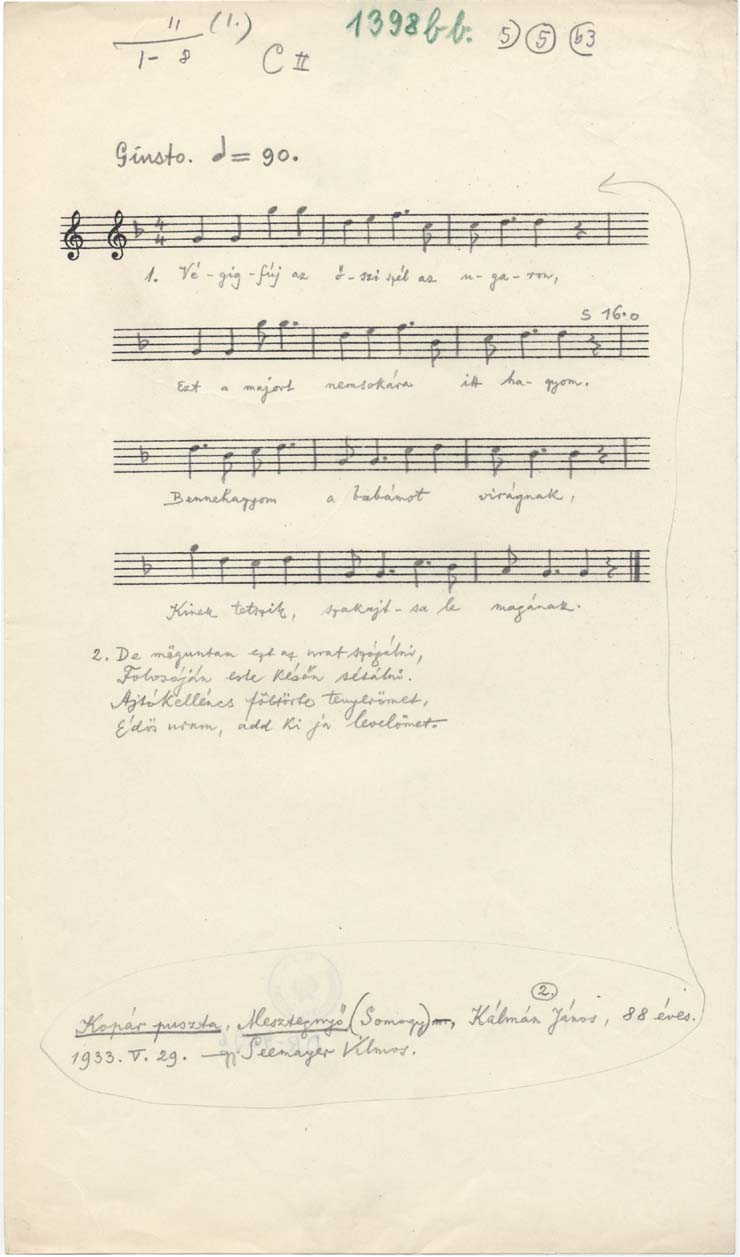 11 (1.)
1- 8
C II
1398 b b.
5 5 b3
Giusto. = 90.
4
4
1. Vé-gig-fúj az ő-szi szél az u-ga-ron,
S 16.0
Ezt a majort nemsokára itt ha-gyom.
Bennehagyom a babámot virágnak,
Kinek tetszik, szakajt-sa le magának.
2. De möguntam ezt az urat szógálni,
Folosóján este későn sétálni.
Ajtókelléncs föltörte tenyerömet,
Édös uram, add ki já levelömet.
2.
Kopár puszta, Mesztegnyő (Somogy), Kálmán János, 88 éves.
1933. V. 29. gy. Seemayer Vilmos.